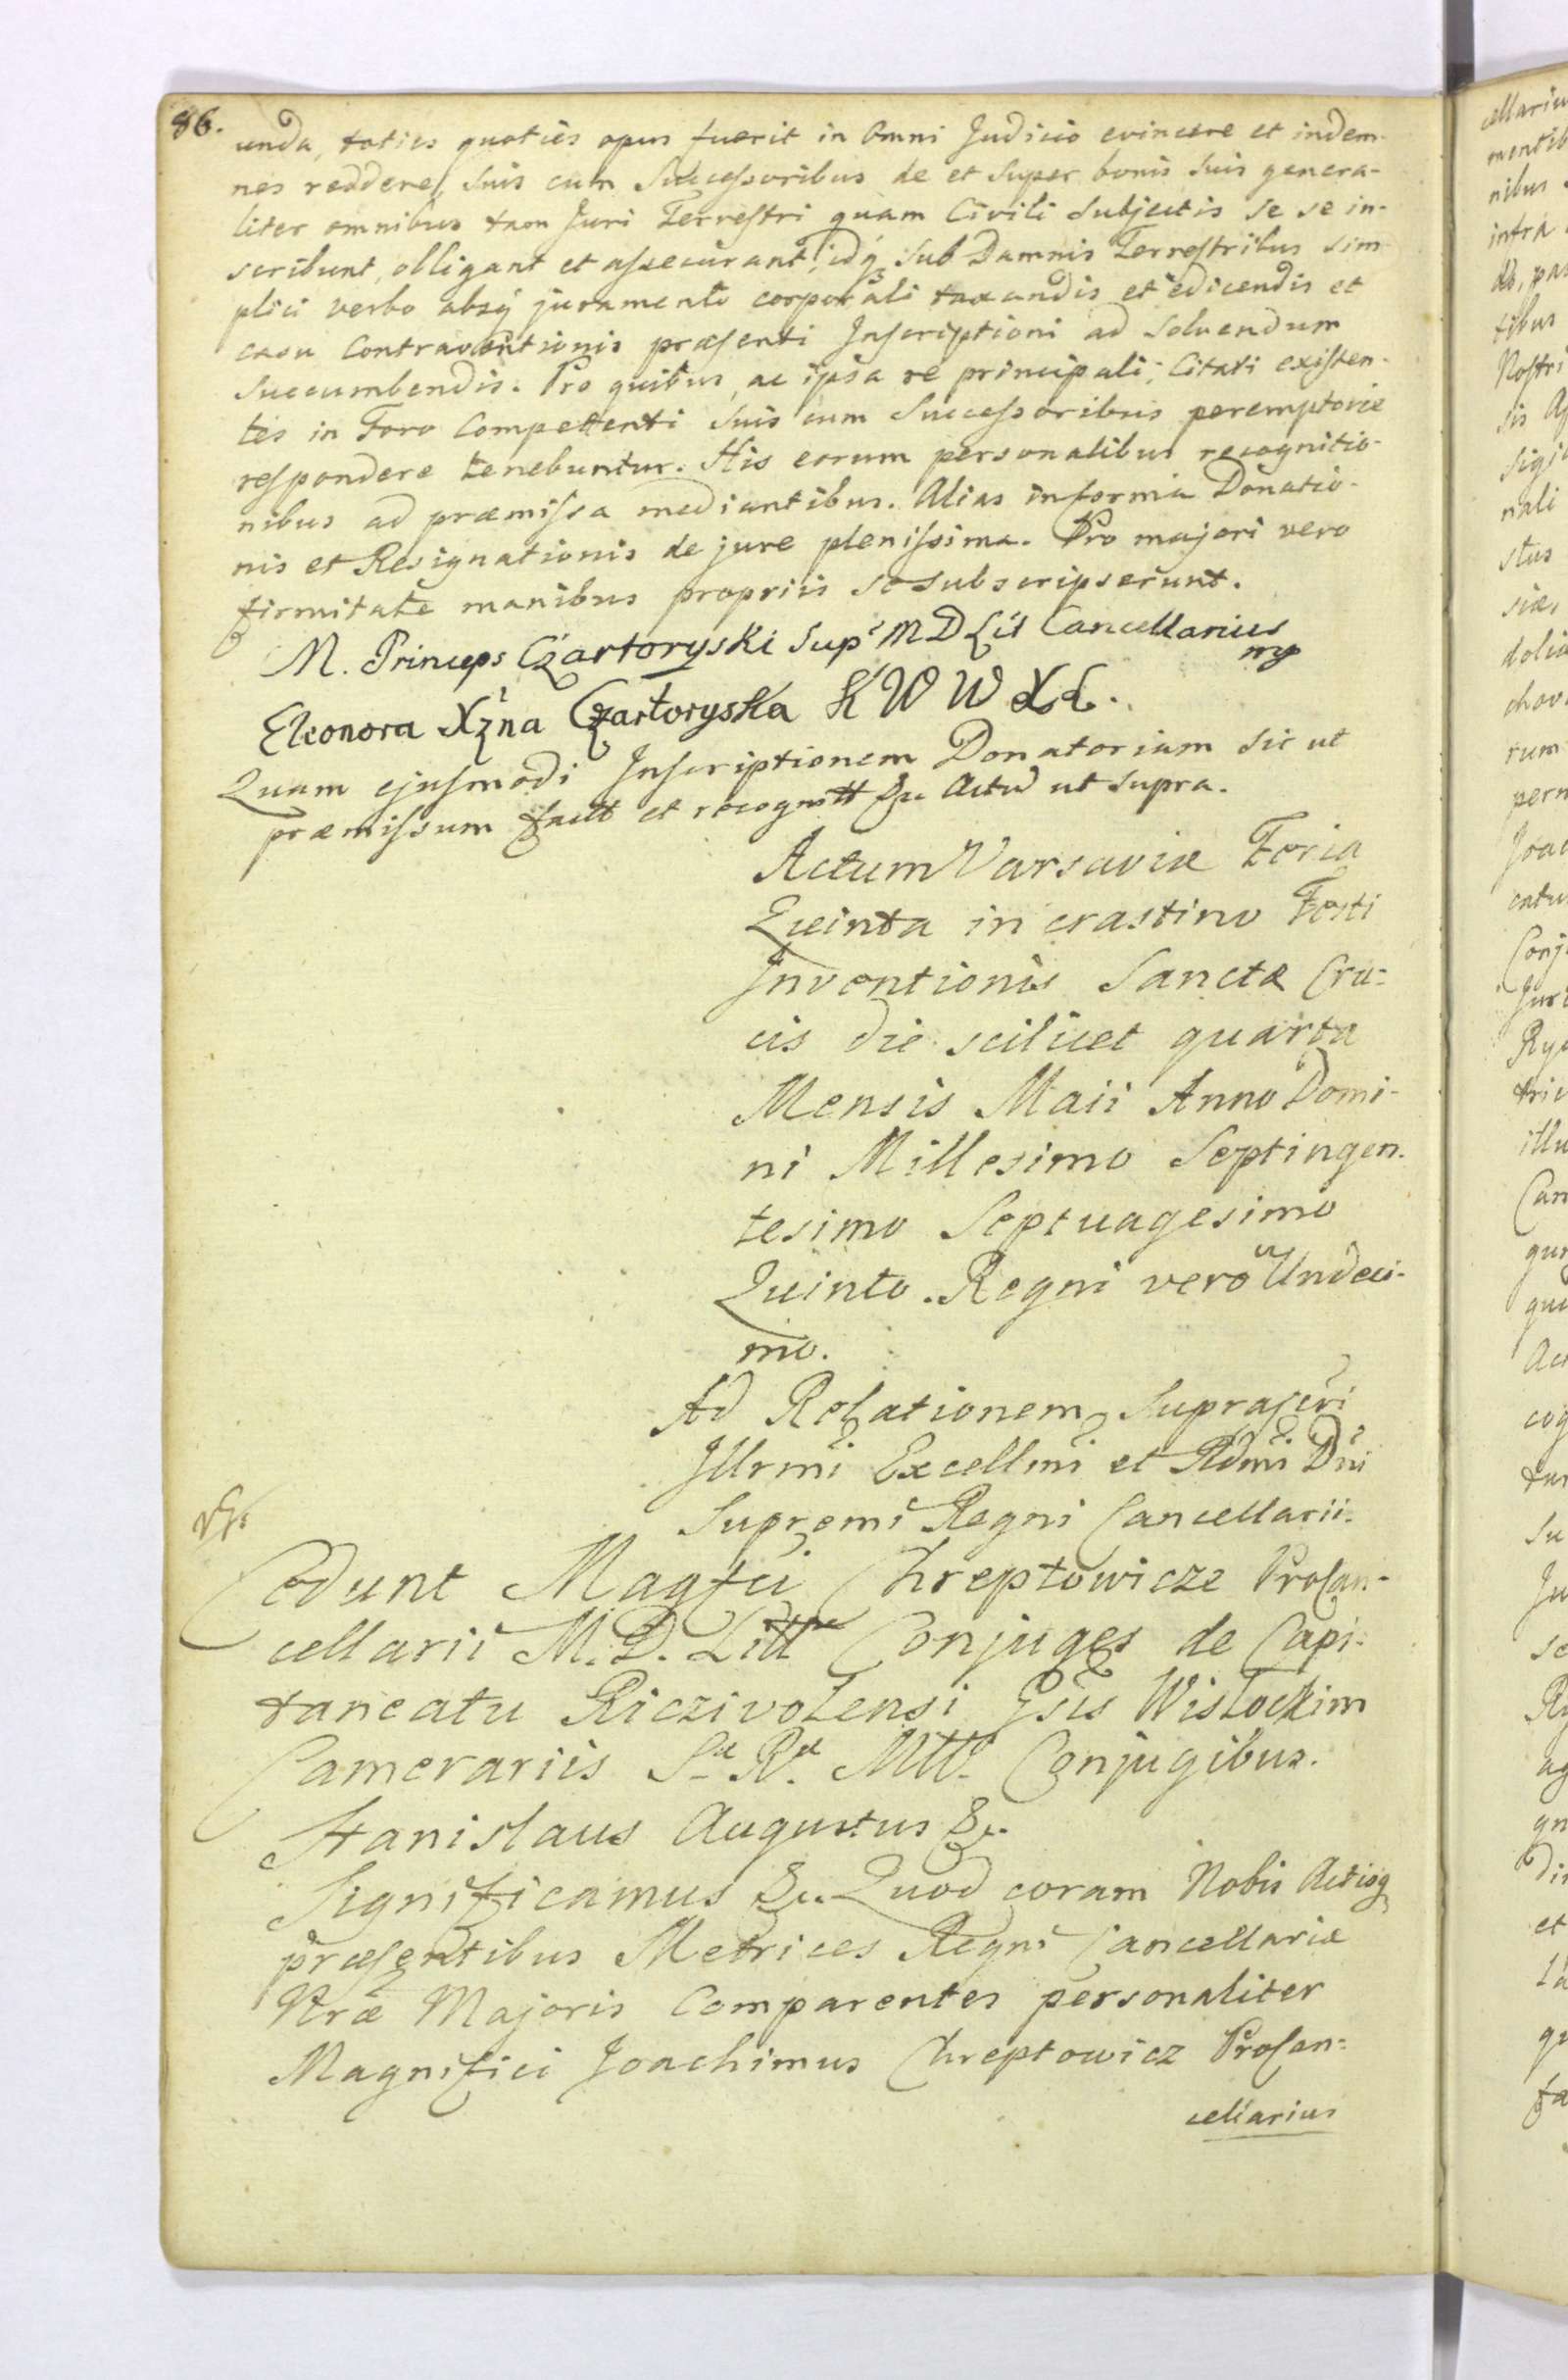 86.
unda, toties quoties opus fuerit in Omni Judicio evincere et indem-
nes reddere, suis cum Successoribus de et super bonis suis genera-
liter omnibus tam Juri Terrestri quam Civili subjectis se se in-
scribunt, obligant et assecurant, idq; sub Damnis Terrestribus sim-
plici verbo absq; juramento corporali taxandis et edicendis et
casu Contraventionis præsenti Inscriptioni ad solvendum
succumbendis. Pro quibus, ac ipsa re principali, Citati existen-
tes in Foro Compettenti suis cum Successoribus peremptorie
respondere tenebuntur. His eorum personalibus recognitio-
nibus ad præmissa mediantibus. Alias in forma Donatio-
nis et Resignationis de jure plenissima. Pro majori vero
firmitate manibus propriis se subscripserunt.
M. Princeps Czartoryski Sup: M D Lit Cancellarius
mp
Eleonora Xżna Czartoryska K W W X L.
Quam ejusmodi Inscriptionem Donatoriam sic ut
præmissum factt et recognitt &c Actu ut supra.
Actum Varsaviæ Feria
Quinta in crastino Festi
Inventionis Sanctæ Cru-
cis die scilicet quarta
Mensis Maii Anno Domi-
ni Millesimo Septingen-
tesimo Septuagesimo
Quinto. Regni vero Undeci-
mo.
Ad Relationem Suprascri
Illrmi Excellmi et Rdmi Dni
Supremi Regni Cancellarii.
Cedunt Magfci Chreptowicze ProCan-
cellarii M. D. Litt Conjuges de Capi-
taneatu Riczivolensi Gsis Wisłockim
Camerariis S. R. Mttis Conjugibus.
Stanislaus Augustus &c.
Significamus &c. Quod coram Nobis Actisq;
præsentibus Metrices Regni Cancellariæ
Ntræ Majoris Comparentes personaliter
Magnifici Joachimus Chreptowicz ProCan-
cellarius